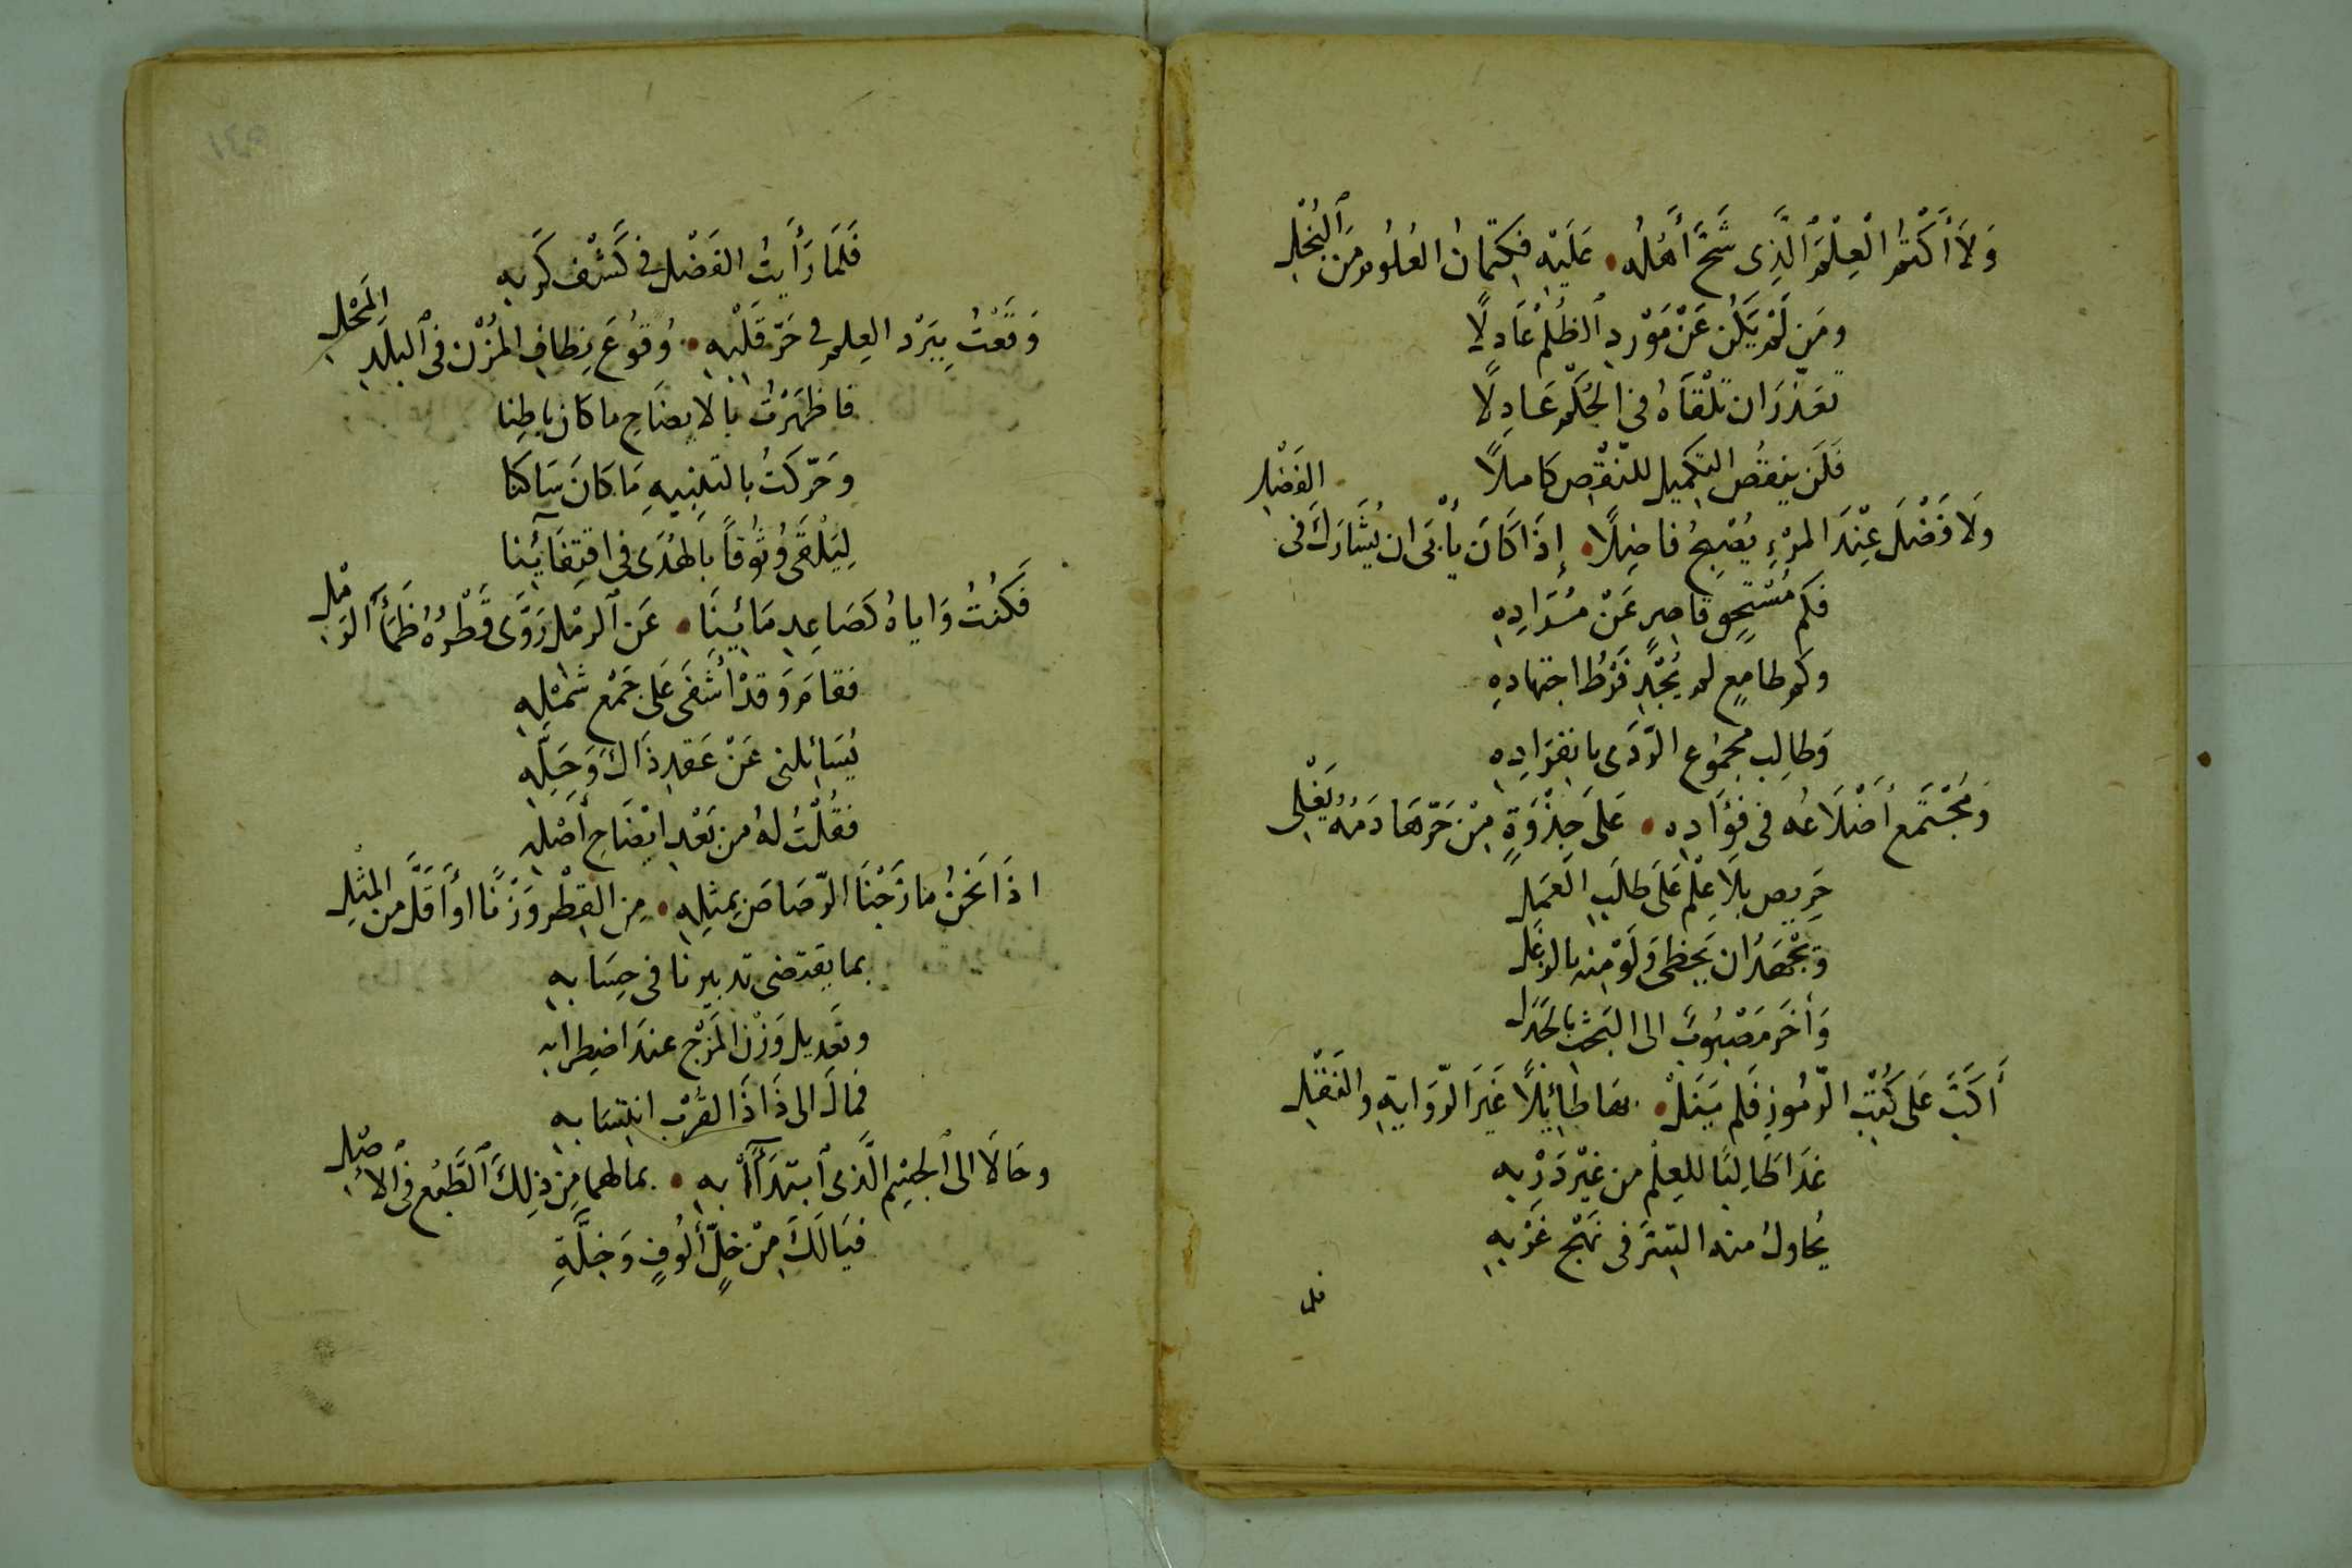 وَلَا أَكْتُمُ الْعِلْمَ ٱلَّذِى شَحَّ أَهْلُه • عَلَيْهِ فَكِتْمانُ العُلُومِ مَنَ ٱلْبُخْلِ
ومَن لَمْ يَكُن عَنْ مَوْرِدِ ٱلظُلْمِ عَادِلًا
تعَذّرَ ان تَلْقَاهُ فى الحُكْمِ عَادِلًا
فَلَن ينقُصَ التكميل للنّقْصِ كاملًا
ولَا فَضْلَ عِنْدَ المرْءِ يُصْبِحُ فاضِلًا • إِذَا كَانَ يأْبَى ان يُشَارَكَ فى الفَضْلِ
فكم مُسْتحِقٍ قاصِرٍ عَنْ مُرَادِهِ
وكم طامِعٍ لم يُجْدِ فَرْطُ اجتهادهِ
وَطالِبِ مجموُع الرّدَى بانفرَادِهِ
وَمُجْتَمع أضْلَاعُه فى فؤَادِه • عَلَى جِذْوَةٍ مِنْ حَرّهَا دَمُهُ يَغْلِى
حَرِيصٍ بلَا عِلْمٍ عَلَى طلَبِ العَمَلِ
وَيَجْهَدُ ان يَحظى وَلَوْ مِنه بالوَغَل
وَأخَرَ مَصْبُوبٌ الى البَحْثِ بالجَدَل
أَكَبَّ عَلَى كُتْبِ الرّمُوزِ فَلم يَنَلْ • بهَا طائِلًا غَيْرَ الرّوَايَةِ والنَقْلِ
غَدَا طَالِبًا لِلعِلْمِ من غَيْرِ دَرْبِه
يُحاولُ منه التبرَ فى نَهْج غَرْبِهِ
فلما
فَلَمَا رَأَيتُ الفَضْل فى كَشْف كَرْبِهِ
وَقَعْتُ بِبَرْد العِلمِ فى حَرّ قَلْبِهِ • وُقوُعَ نِطافِ المُزْن فى ٱلبلَدِ المَحْلِ
فاظهَرْتُ بالايضَاحِ ما كان باطِنا
وَحَرّكتُ بالتنبِيهِ مَا كَانَ سَاكنَا
لِيَلْقَى وُثُوقاً بَالهُدَى فى اقتِفَآئِنا
فَكُنْتُ وَاياهُ كصَاعِدِ مَائِنَا • عَنِ ٱلرمْلِ رَوَّى قَطْرهُ ظَمَأَ الرَمْلِ
فقامَ وَقدْ أشْفَى عَلَى جَمْع شَمْلِهِ
يُسَائِلنى عَنْ عَقدِ ذَاكَ وَحَلِّهِ
فقُلْتُ لهُ من بَعْدِ ايْضَاحِ أَصْلِهِ
اذَا نَحْنُ مازَجْنَا الرّصَاصَ بِمثلِهِ • مِنَ القِطْرِ وَزْنًا أوْ أقَلَّ من المثْلِ
بما يقتضى تدبيرنا فى حِسَابِه
وتعْديل وَزْن المَزْج عندَ اضطرابه
فمالَ الى ذَا ذَا لقُرْب انتسَابِهِ
وحَالَا الى ٱلجِسْمِ الَّذى ٱبتدَأَآ بِهِ • بمالهما مِنْ ذلِكَ ٱلطَّبْع فى ٱلأَصْلِ
فيَالَكَ مِنْ خِلٍّ أَلُوفٍ وَخِلَّةٍ